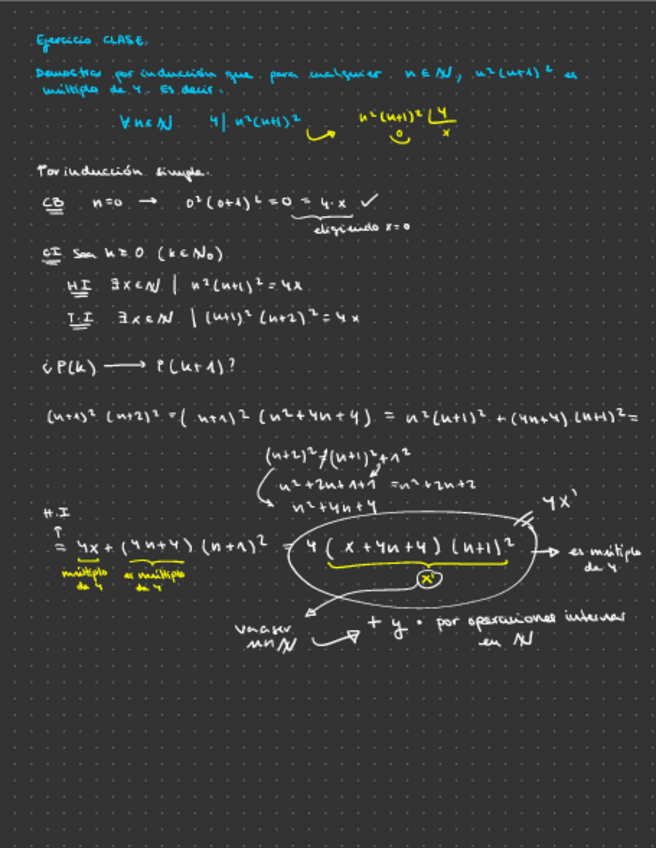 Ejercicio CLASE.
Demostrar por inducción que para cualquier n ∈ N, n²(n+1)² es
múltiplo de 4. Es decir.
∀n∈N 4| n²(n+1)² n²(n+1)² |4
0 x
Por inducción simple.
CB n=0 → 0²(0+1)² = 0 = 4·x ✓
eligiendo x=0
CI Sea k≥0 (k∈N₀)
HI ∃x∈N | n²(n+1)² = 4x
T.I ∃x∈N | (n+1)² (n+2)² = 4x
¿P(k) → P(k+1)?
(n+1)² (n+2)² = (n+1)² (n²+4n+4) = n²(n+1)² + (4n+4).(n+1)² =
(n+2)² ≠ (n+1)²+1²
n²+2n+1+1 = n²+2n+2
n²+4n+4
H.I 4x'
= 4x + (4n+4) (n+1)² = 4 ( x+4n+4) (n+1)² → es múltiplo
de 4
múltiplo es múltiplo
de 4 de 4
x'
va a ser + y · por operaciones internas
un N en N